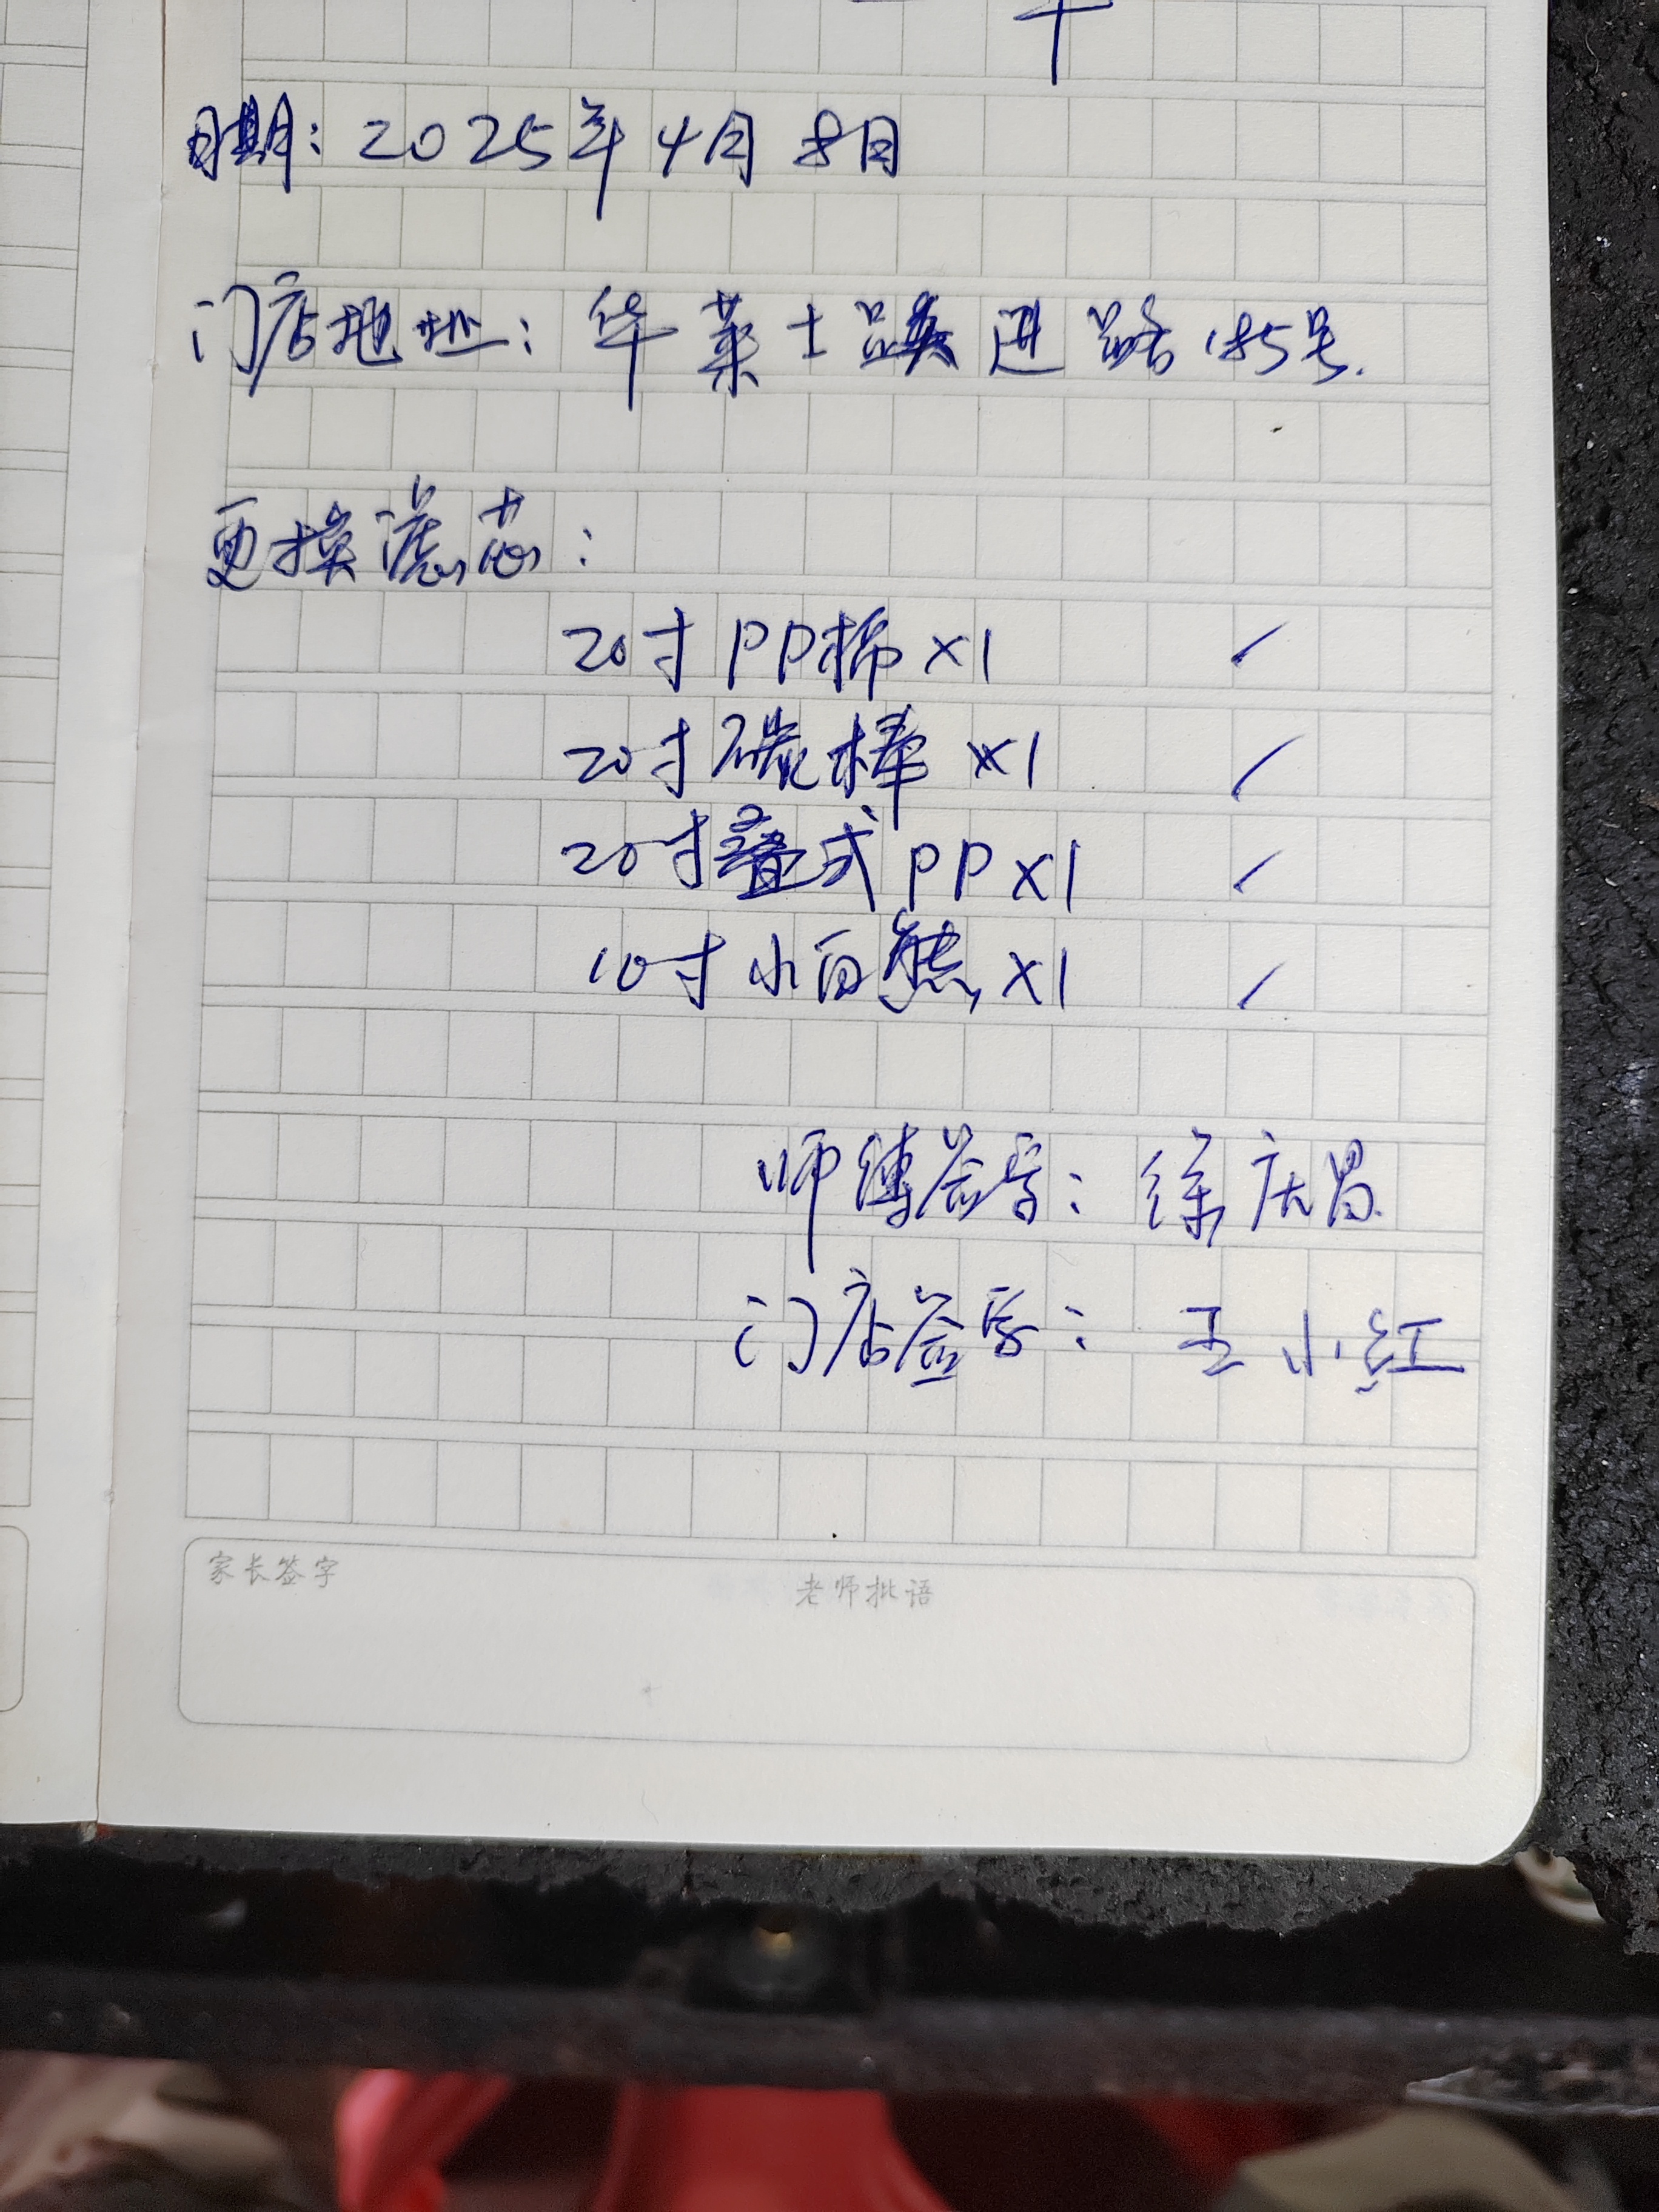 日期：2025年4月8日
门店地址：华莱士跃进路185号.
更换滤芯：
20寸PP棉×1 ✓
20寸碳棒×1 ✓
20寸叠式PP×1 ✓
10寸小白熊×1 ✓
师傅签字：徐庆昌
门店签字：王小红
家长签字
老师批语